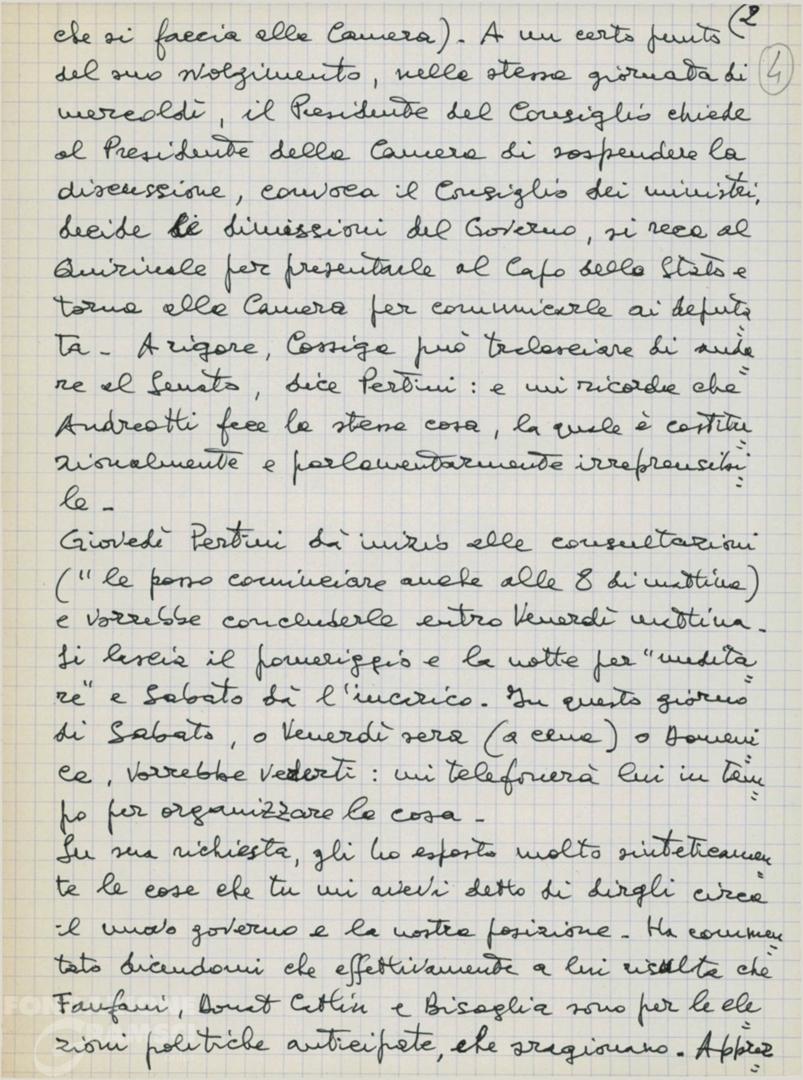 (2
4
che si faccia alla Camera). A un certo punto
del suo svolgimento, nella stessa giornata di
mercoldì, il Presidente del Consiglio chiede
al Presidente della Camera di sospendere la
discussione, convoca il Consiglio dei ministri,
decide le dimissioni del Governo, si reca al
Quirinale per presentarle al Capo dello Stato e
torna alla Camera per comunicarle ai deputa=
ta - A rigore, Cossiga può tralasciare di anda=
re al Senato, dice Pertini: e mi ricorda che
Andreotti fece la stessa cosa, la quale è costitu=
zionalmente e parlamentarmente irreprensibi=
le -
Giovedì Pertini dà inizio alle consultazioni
("le posso cominciare anche alle 8 di mattina)
e vorrebbe concluderle entro Venerdì mattina -
Si lascia il pomeriggio e la notte per "medita=
re" e Sabato dà l'incarico. In questo giorno
di Sabato, o Venerdì sera (a cena) o Domeni=
ca, vorrebbe vederti: mi telefonerà lui in tem=
po per organizzare la cosa -
Su sua richiesta, gli ho esposto molto sinteticamen=
te le cose che tu mi avevi detto di dirgli circa
il nuovo governo e la nostra posizione - Ha commen=
tato dicendomi che effettivamente a lui risulta che
Fanfani, Donat Cattin e Bisaglia sono per le ele=
zioni politiche anticipate, che sragionano. Apprez=